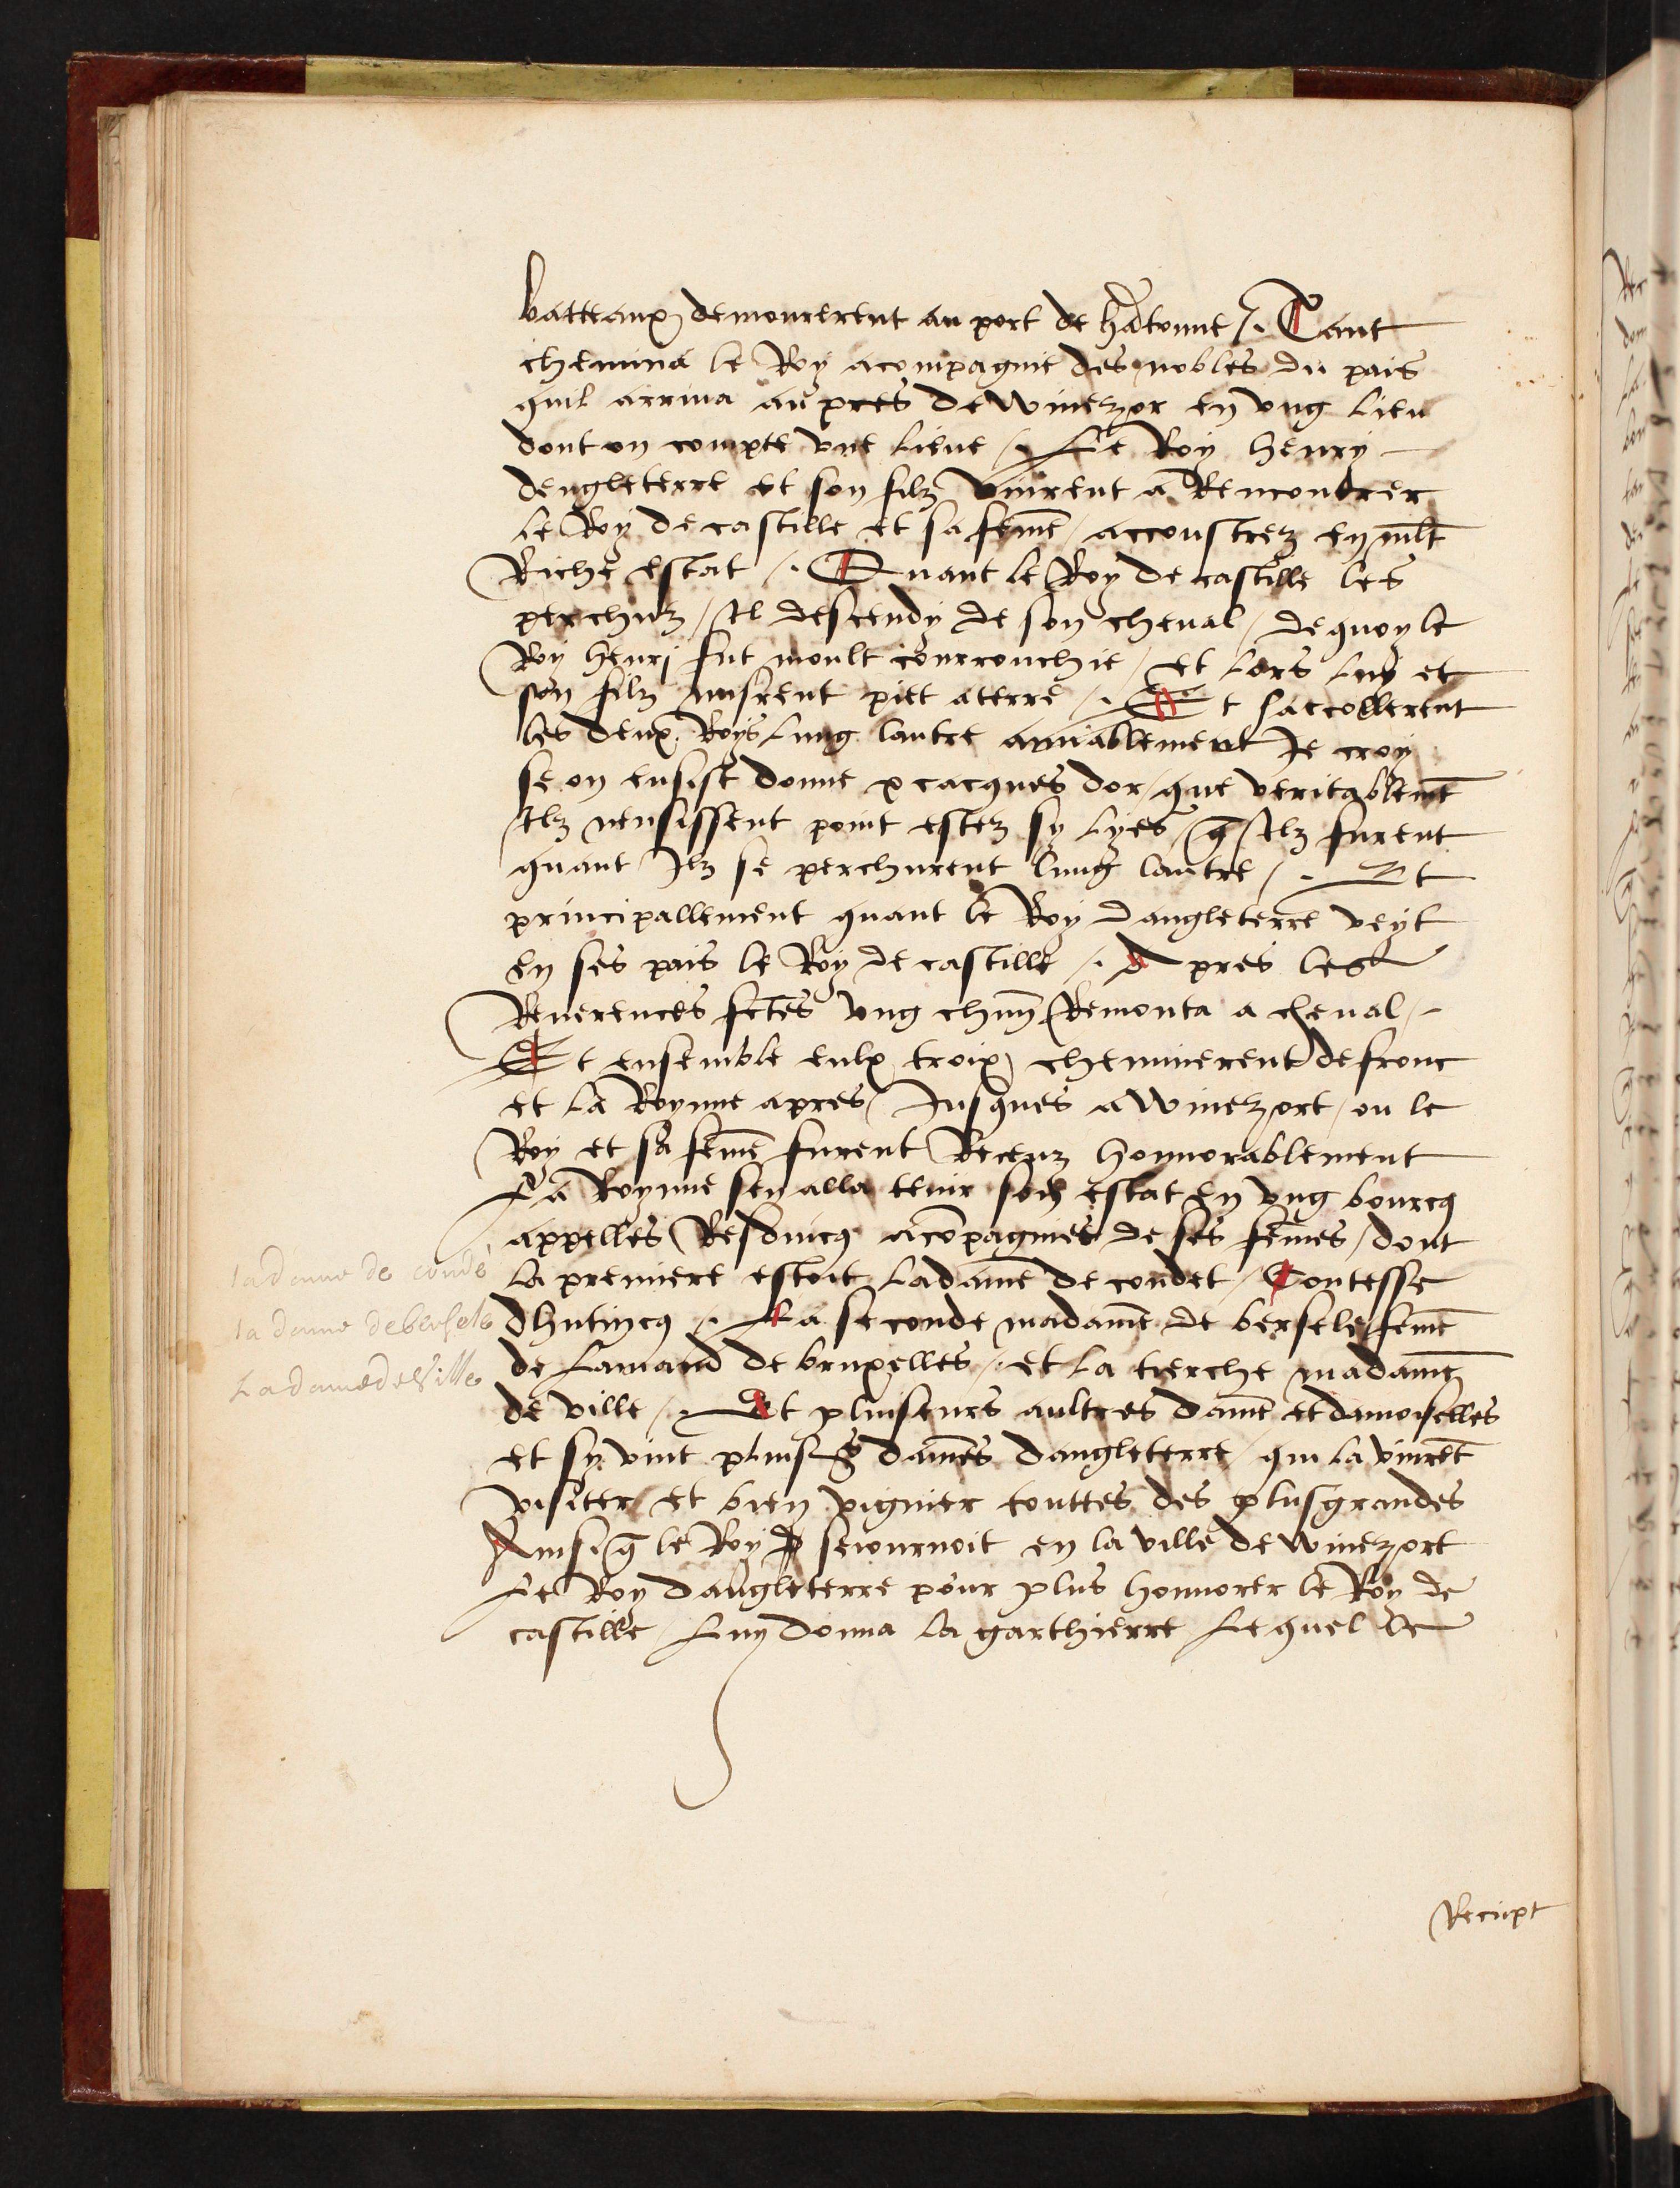 batteaux demourerent au port de hãtonne /. Tant
chemina le Roy acompagnie des nobles du pais
quil arriua aupres de winezor en vng lieu
dont on compte vne lieue /. Le Roy henry
dengleterre et son filz vinrent a Rencontrer
le Roy de castille et sa fem̃e / accoustrez en mlt̃
Riche estat /. Quant le Roy de castille les
perchuz / Il descendy de son cheual / de quoy le
Roy henrj fut moult courrouchie / et lors luy et
son filz misrent piet a terre /. Et saccollerent
les deux Roys lung lautre amiablement Je croy
se on eusist donne x cacques dor / que veritablemẽt
Ilz neusissent point estez sy lyes / q̃ Ilz furent
quant Ilz se perchurent lung lautre /. Et
principallement quant le Roy dangleterre veyt
en ses pais le Roy de castille /. Apres les
Reuerences fc̃tes vng chm̃ Remonta a cheual /.
Et ensemble eulx troix cheminerent de fronc
et la Roynne apres / Jusques a winezort / ou le
Roy et sa fem̃e furent Receuz honnorablement
La Roynne sen alla tenir son estat en vng bourcq
appelles Resduicq acõpagnies de ses fem̃es / dont
la premiere estoit la dame de condet / Contesse
dhutincq /. La seconde madame de bersele fem̃e
de lamand de bruxelles /. et la tierche madame
de ville /. Et pluiseurs aultres dame et damoiselles
et sy vint pluisrs dam̃es dangleterre / qui la vinrẽt
visiter et bien vignier touttes des plus grandes
Ainsi q̃ le Roy seiournoit en la ville de winezort
Le Roy dangleterre pour plus honnorer le Roy de
castille / Luy donna la garthierre / Lequel le
Reciupt
la dame de condé
la dame de bersele
La dame de Ville